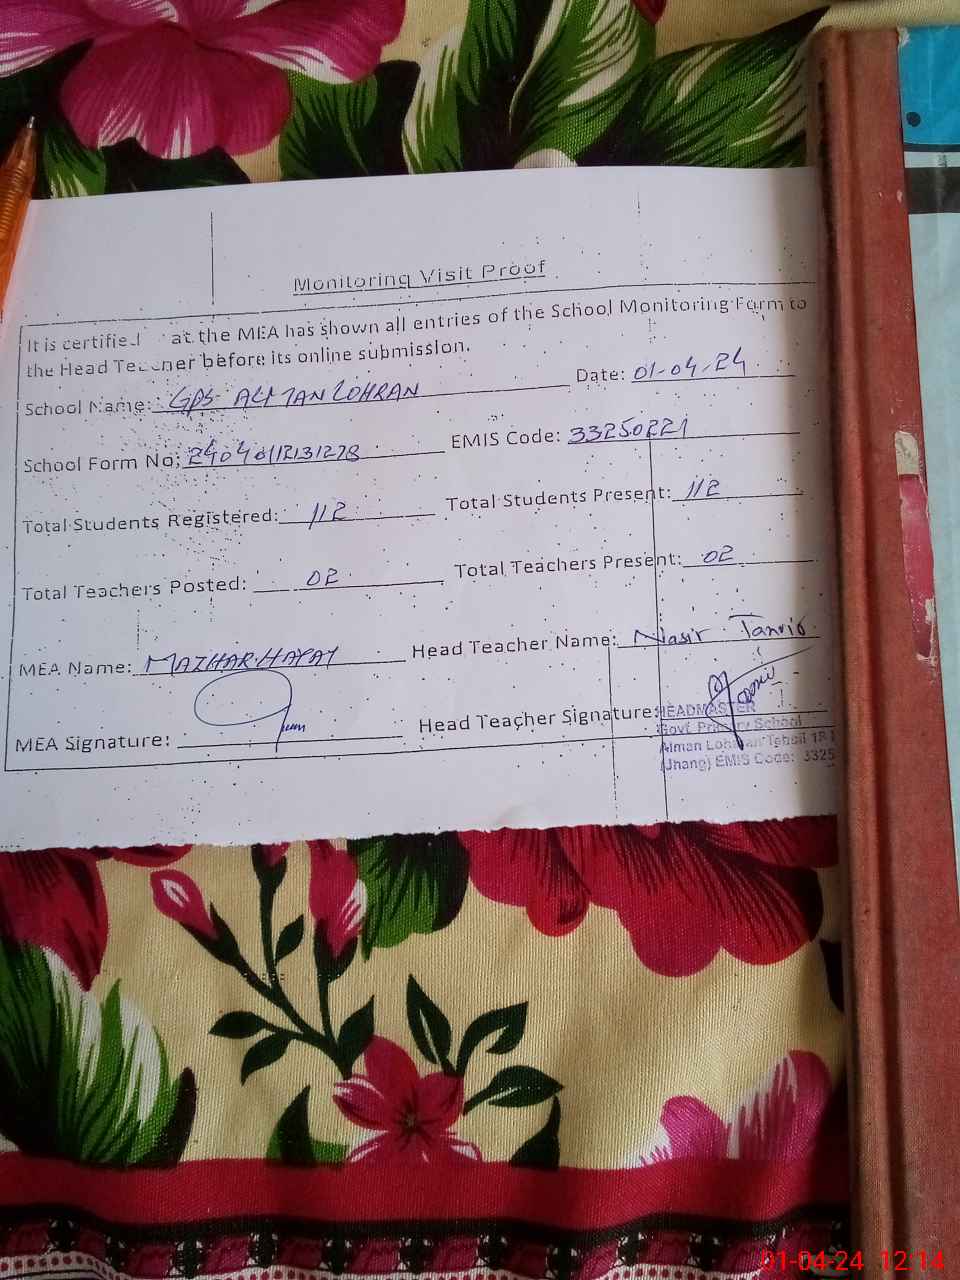 Monitoring Visit Proof
It is certified at the MEA has shown all entries of the School Monitoring Form to
the Head Teacher before its online submission.
School Name: GPS ALMAN LOHRAN Date: 01-04-24
School Form No: 24040112131278 EMIS Code: 33250221
Total Students Registered: 112 Total Students Present: 112
Total Teachers Posted: 02 Total Teachers Present: 02
MEA Name: MAZHAR HAYAT Head Teacher Name: Nasir
MEA Signature: Head Teacher Signature:
HEADMASTER
Govt. Primary School
Alman Lohran Tehsil 18
(Jhang) EMIS Code: 3325
01-04-24 12:14